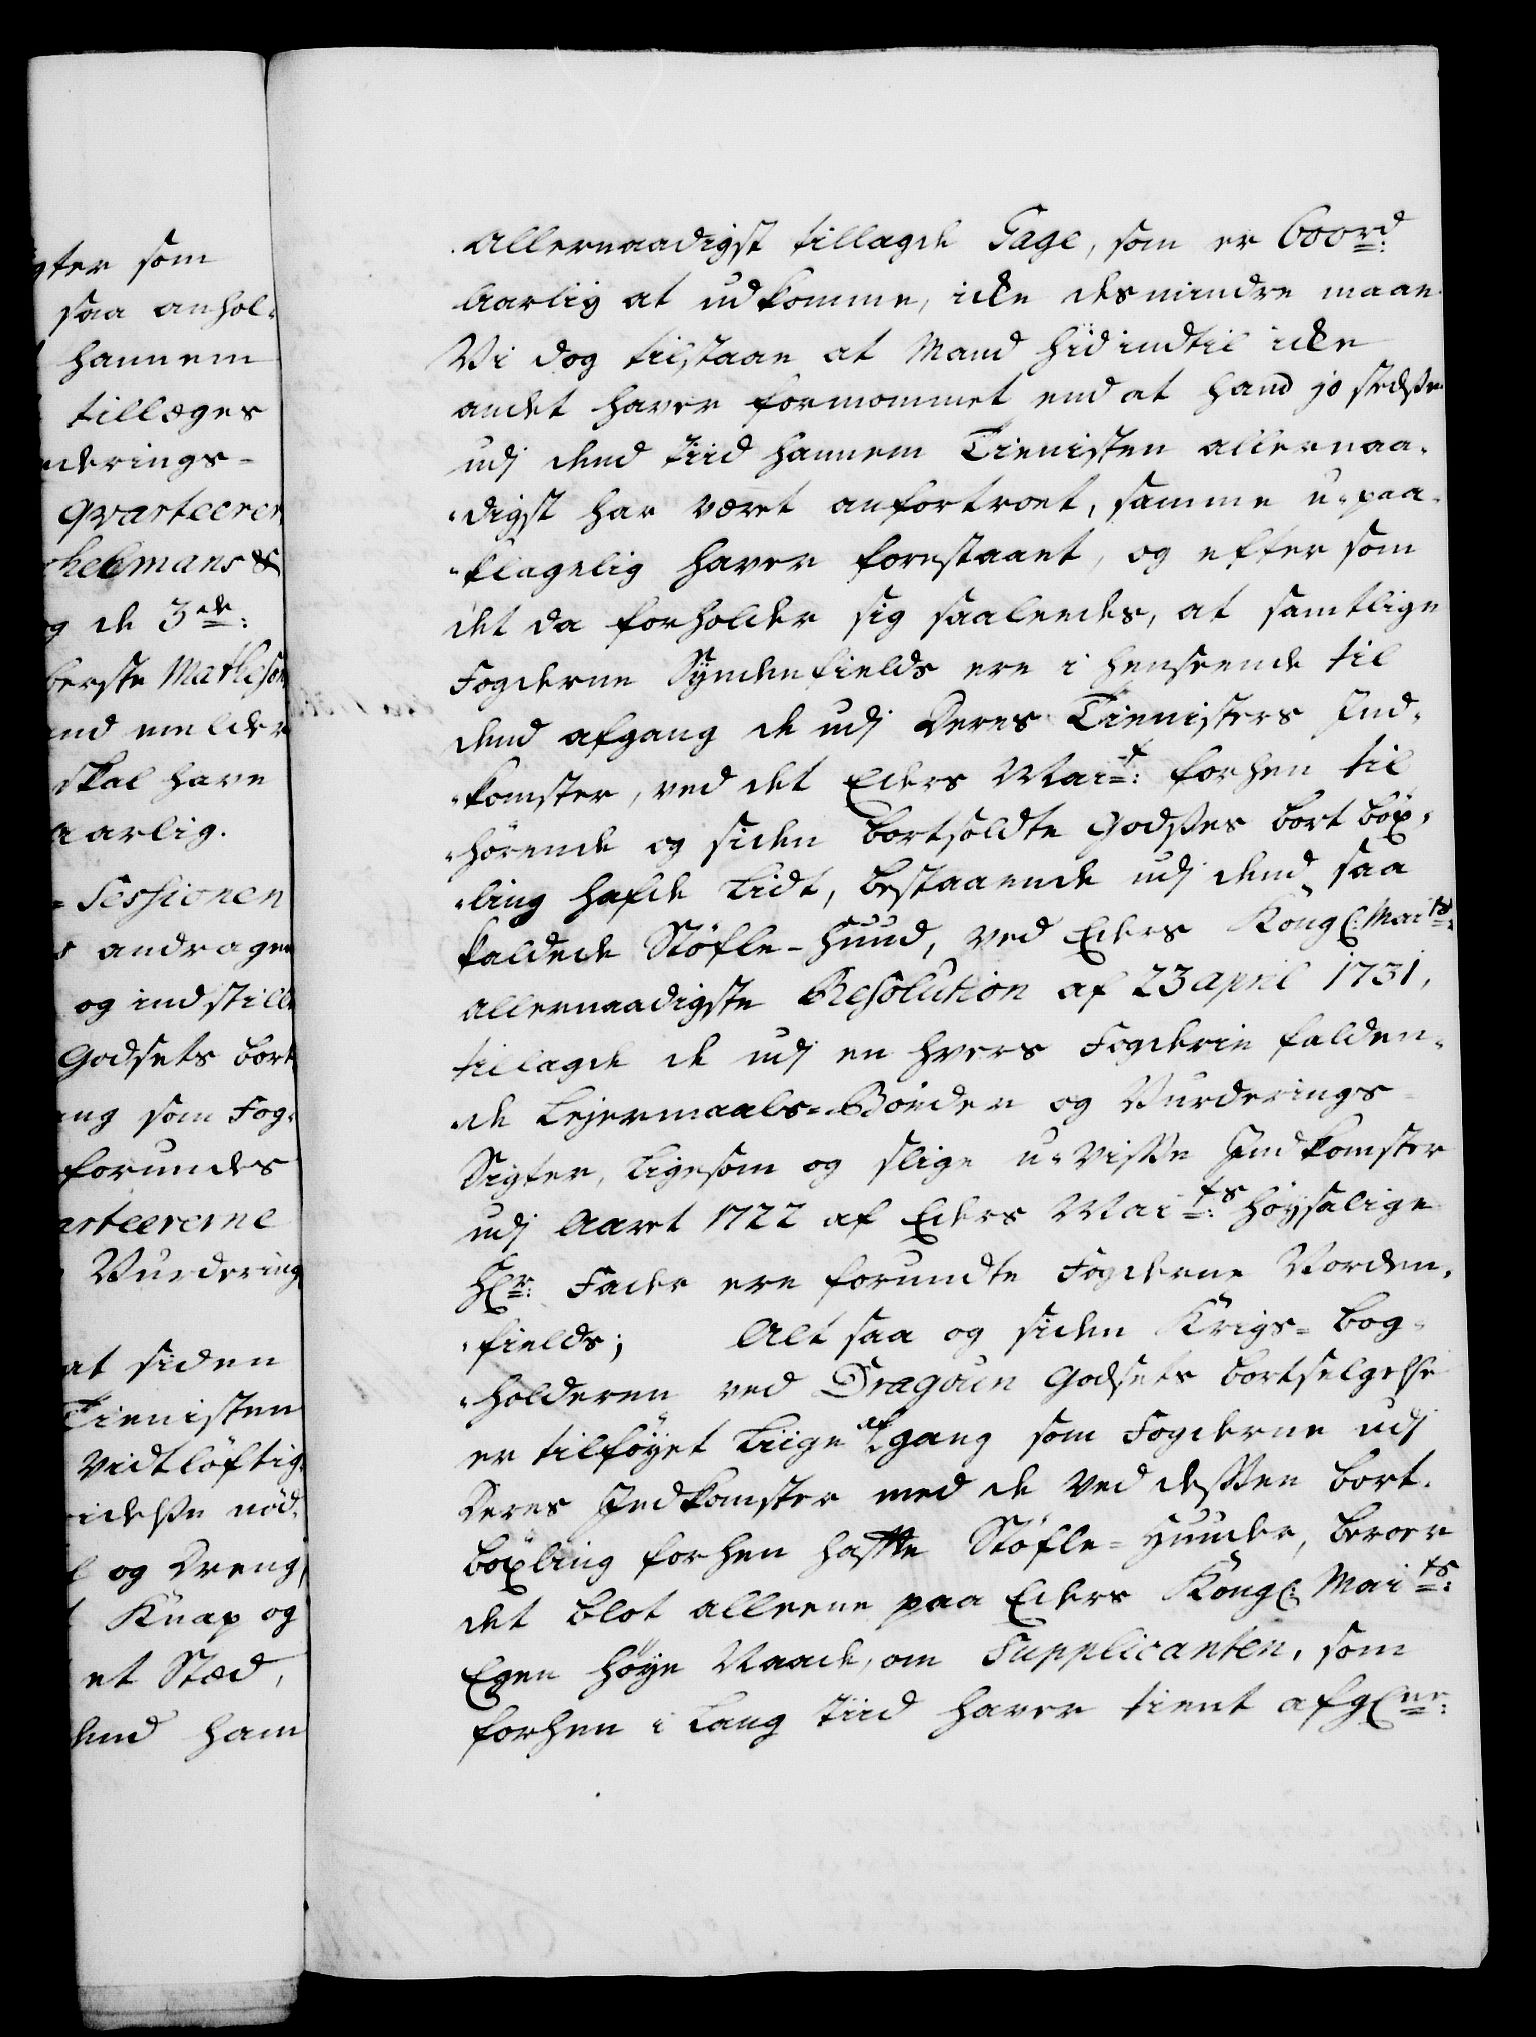 gter som
saa anhol-
hannem
tillæges
rderings-
Qvarteerer
og de 3de:
berste Mathesen
and melder
skal have
aarlig.
Sessionen
andragen
og indstille
Godsets bort
ang som Fog-
forundes
arteererne
Vurdering
at siden
Tienisten
Vidtløftig-
nød-
og Dreng,
Knap og
et Stæd,
end ham
Allernaadigst tillagde Gage, som er 600 rd:
Aarlig at udkomme, icke desmindre maae
Vi dog tilstaae at Mand hidindtil icke
andet haver fornommet end at hand jo stedsse
udj dend tiid hannem Tienisten allernaa-
-digst har været anfortroet, samme u-paa-
-klagelig haver forestaaet, og efter som
det da forholder sig saaleedes, at samtlige
Fogderne Syndenfields ere i henseende til
dend afgang de udj deres Tienisters Ind-
-komster, ved det Eders Mait: forhen til
-hørende og siden bortsoldte Godsses bort böx-
-ling hafde Lidt, bestaaende udj dend saa
kaldede Støfle-Huud, ved Eders Kongl: Maits:
allernaadigste Resolution af 23 april 1731,
tillagde de udj en hvers Fogderie falden-
-de Lejermaals-Bøder og Vurderings-
Sigter, Ligesom og slige u-visse Indkomster
udj Aaret 1722 af Eders Maits: Høysalige
Hr: Fader ere forundte Fogderne Norden-
-fields; Alt saa og siden Krigs-bog-
-holderen ved Dragoun Godsets bortselgelse
er tilføyet Liige afgang som Fogderne udj
deres Indkomster med de ved dessen bort-
böxling forhen hafte Støfle-Huuder, beroer
det blot alleene paa Eders Kongl: Maits:
Egen høye Naade, om Supplicanten, som
forhen i Lang tiid haver tient afgl ne: